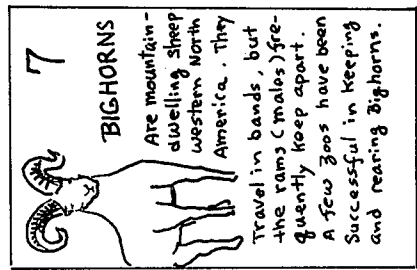 7
BIGHORNS
Are mountain-
dwelling sheep
western North
America. They
Travel in bands, but
the rams (males) fre-
quently keep apart.
A few zoos have been
Successful in keeping
and rearing Bighorns.